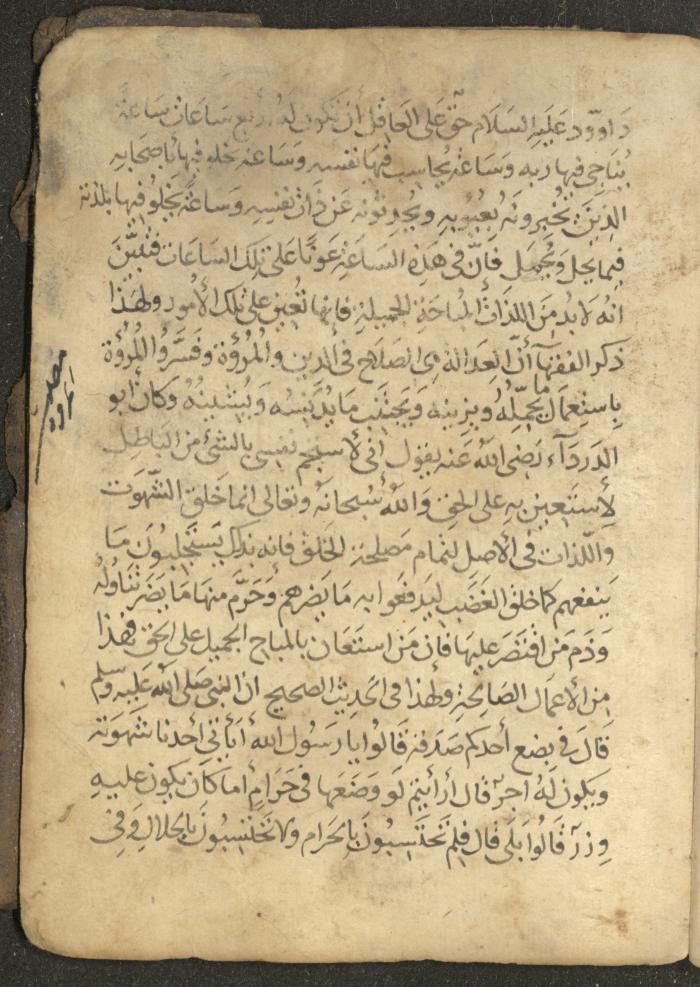 داوود عليه السلام حق على العاقل أن تكون له أربع ساعات ساعة
يناجي فيها ربه وساعة يحاسب فيها نفسه وساعة يخلو فيها باصحابه
الذين يخبرونه بعيوبه ويحدثونه عن ذات نفسه وساعة يخلوا فيها بلذته
فيما يحل ويجمل فان في هذه الساعة عونا على تلك الساعات فتبين
انه لا بد من اللذات المباحة الجميلة فانها تعين على تلك الأمور ولهذا
ذكر الفقهآ أن العدالة هي الصلاح في الدين والمروة وفسروا المروة
باستعمال ما يجمله ويزينه ويجتنب ما يدنسه ويشينه وكان أبو
الدردآء رضي الله عنه يقول اني لأستجم نفسي بالشئ من الباطل
لأستعين به على الحق والله سبحانه وتعالى انما خلق الشهوت
واللذات في الأصل لتمام مصلحة الخلق فانه بذلك يستجلبون ما
ينفعهم كما خلق الغضب ليدفعوا به ما يضرهم وحرم منها ما يضر تناوله
وذم من اقتصر عليها فان من استعان بالمباح الجميل على الحق فهذا
من الأعمال الصالحة ولهذا في الحديث الصحيح ان النبي صلى الله عليه وسلم
قال في بضع أحدكم صدقة قالوا يا رسول الله أيأتي أحدنا شهوته
ويكون له اجر قال أرأيتم لو وضعها في حرام أما كان يكون عليه
وزر قالوا بلى قال فلم تحتسبون بالحرام ولا تحتسبون بالحلال وفي